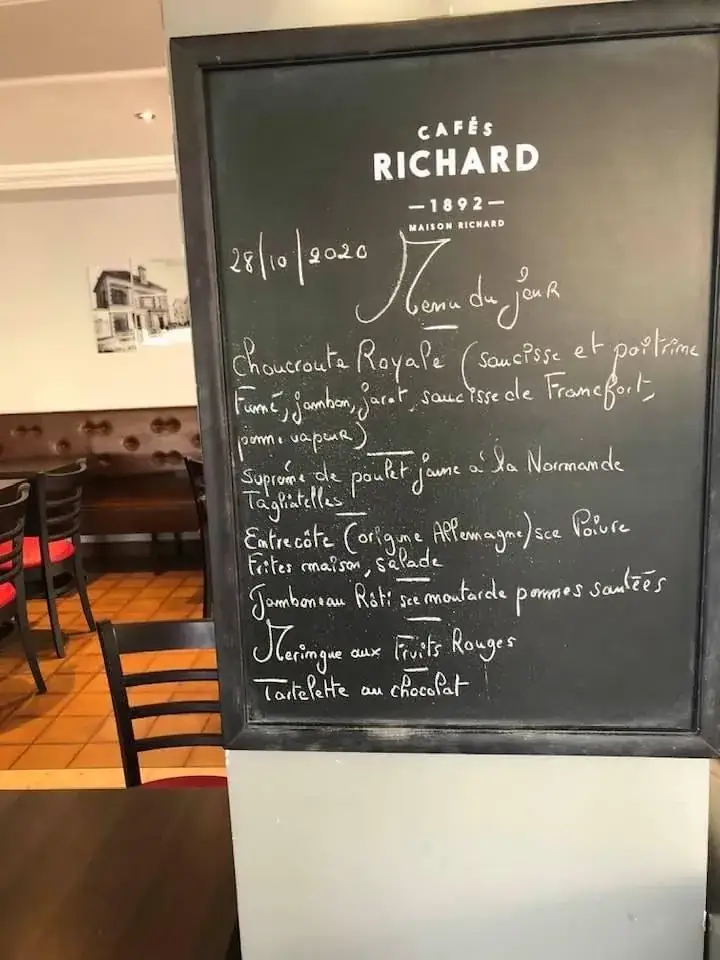 CAFÉS
RICHARD
—1892—
MAISON RICHARD
28/10/2020
Menu du jour
Choucroute Royale (saucisse et poitrine
Fumé, jambon, jaret, saucisse de Francfort,
pomme vapeur)
Suprême de poulet jaune à la Normande
Tagliatelles
Entrecôte (origine Allemagne) sce Poivre
Frites maison, salade
Jambonneau Rôti sce moutarde pommes sautées
Meringue aux Fruits Rouges
Tartelette au chocolat